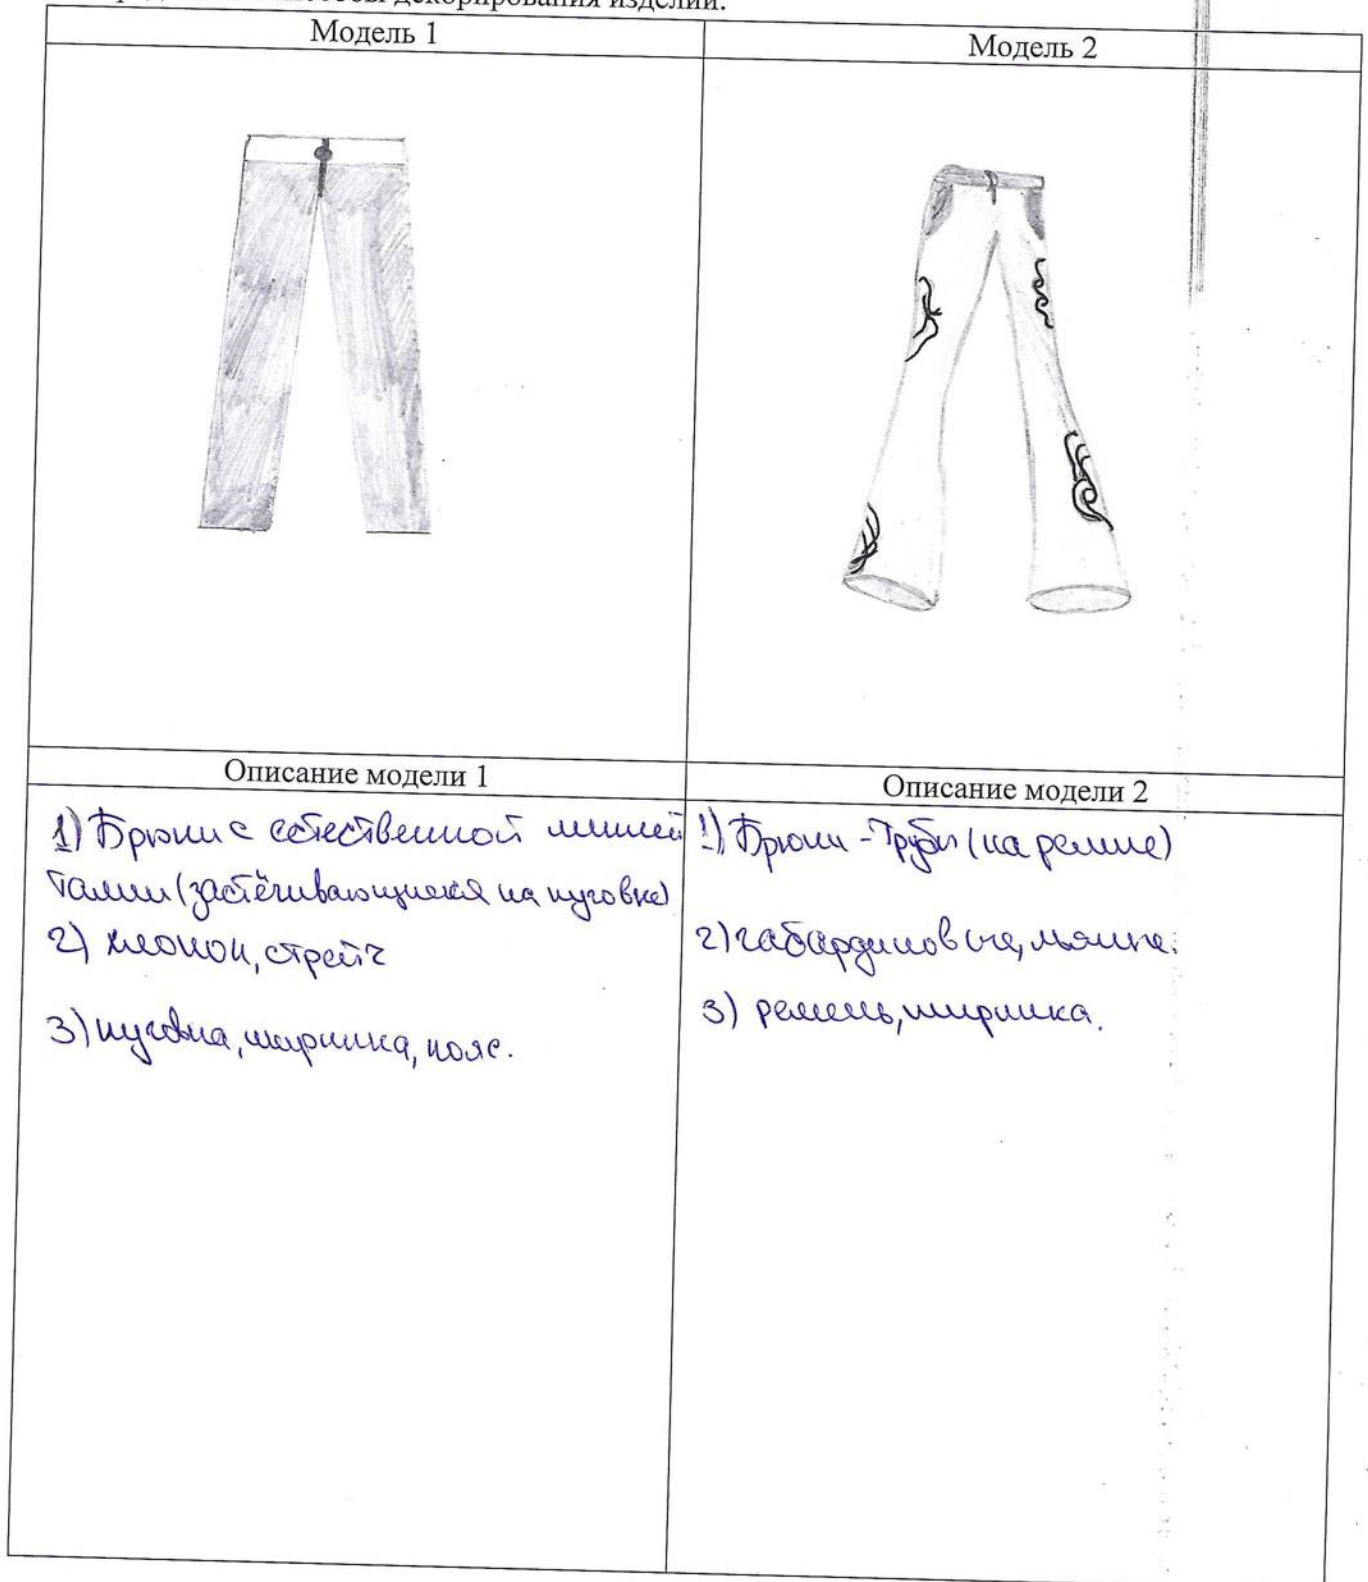 декорирования изделий.
Модель 1
Модель 2
Описание модели 1
1) Брюки с естественной линией
талии (застёгивающиеся на пуговке)
2) хлопок, стрейч
3) пуговка, ширинка, пояс.
Описание модели 2
1) Брюки - Трубы (на ремне)
2) габардиновые, льяные.
3) ремень, ширинка.